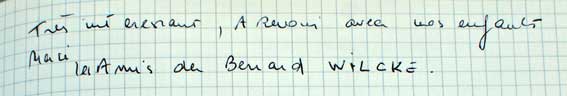 Très intéressant, A Revoir avec nos enfants
Merci, les Amis de Benard WILCKE.